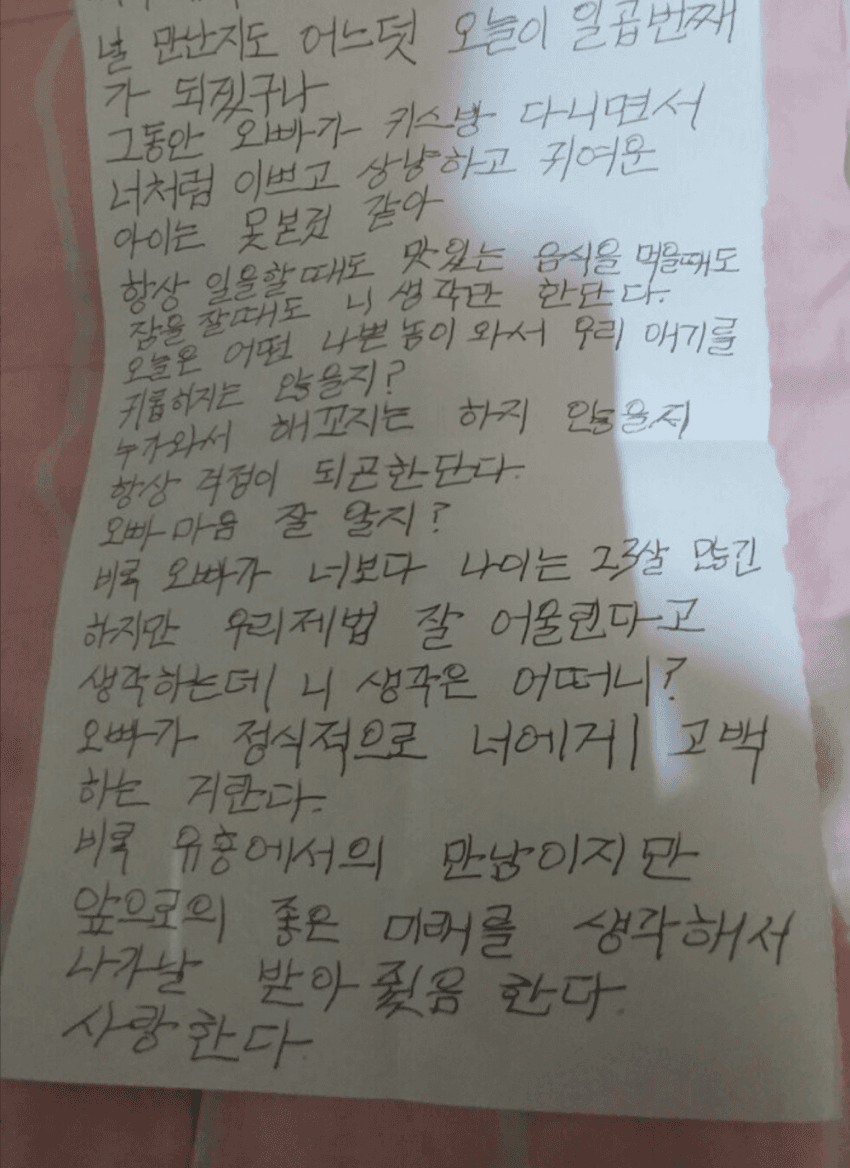 널 만난지도 어느덧 오늘이 일곱번째
가 되겠구나
그동안 오빠가 키스방 다니면서
너처럼 이쁘고 상냥하고 귀여운
아이는 못본것 같아
항상 일을할때도 맛있는 음식을 먹을때도
잠을 잘때도 니 생각만 한단다.
오늘은 어떤 나쁜놈이 와서 우리 애기를
귀롭히지는 않을지?
누가와서 해꼬지는 하지 않을지
항상 걱점이 되곤한단다.
오빠마음 잘 알지?
비록 오빠가 너보다 나이는 23살 많긴
하지만 우리제법 잘 어울린다고
생각하는데 니 생각은 어떠니?
오빠가 정식적으로 너에게 고백
하는 거란다.
비록 유흥에서의 만남이지만
앞으로의 좋은 미래를 생각해서
니가날 받아줫음 한다.
사랑한다.